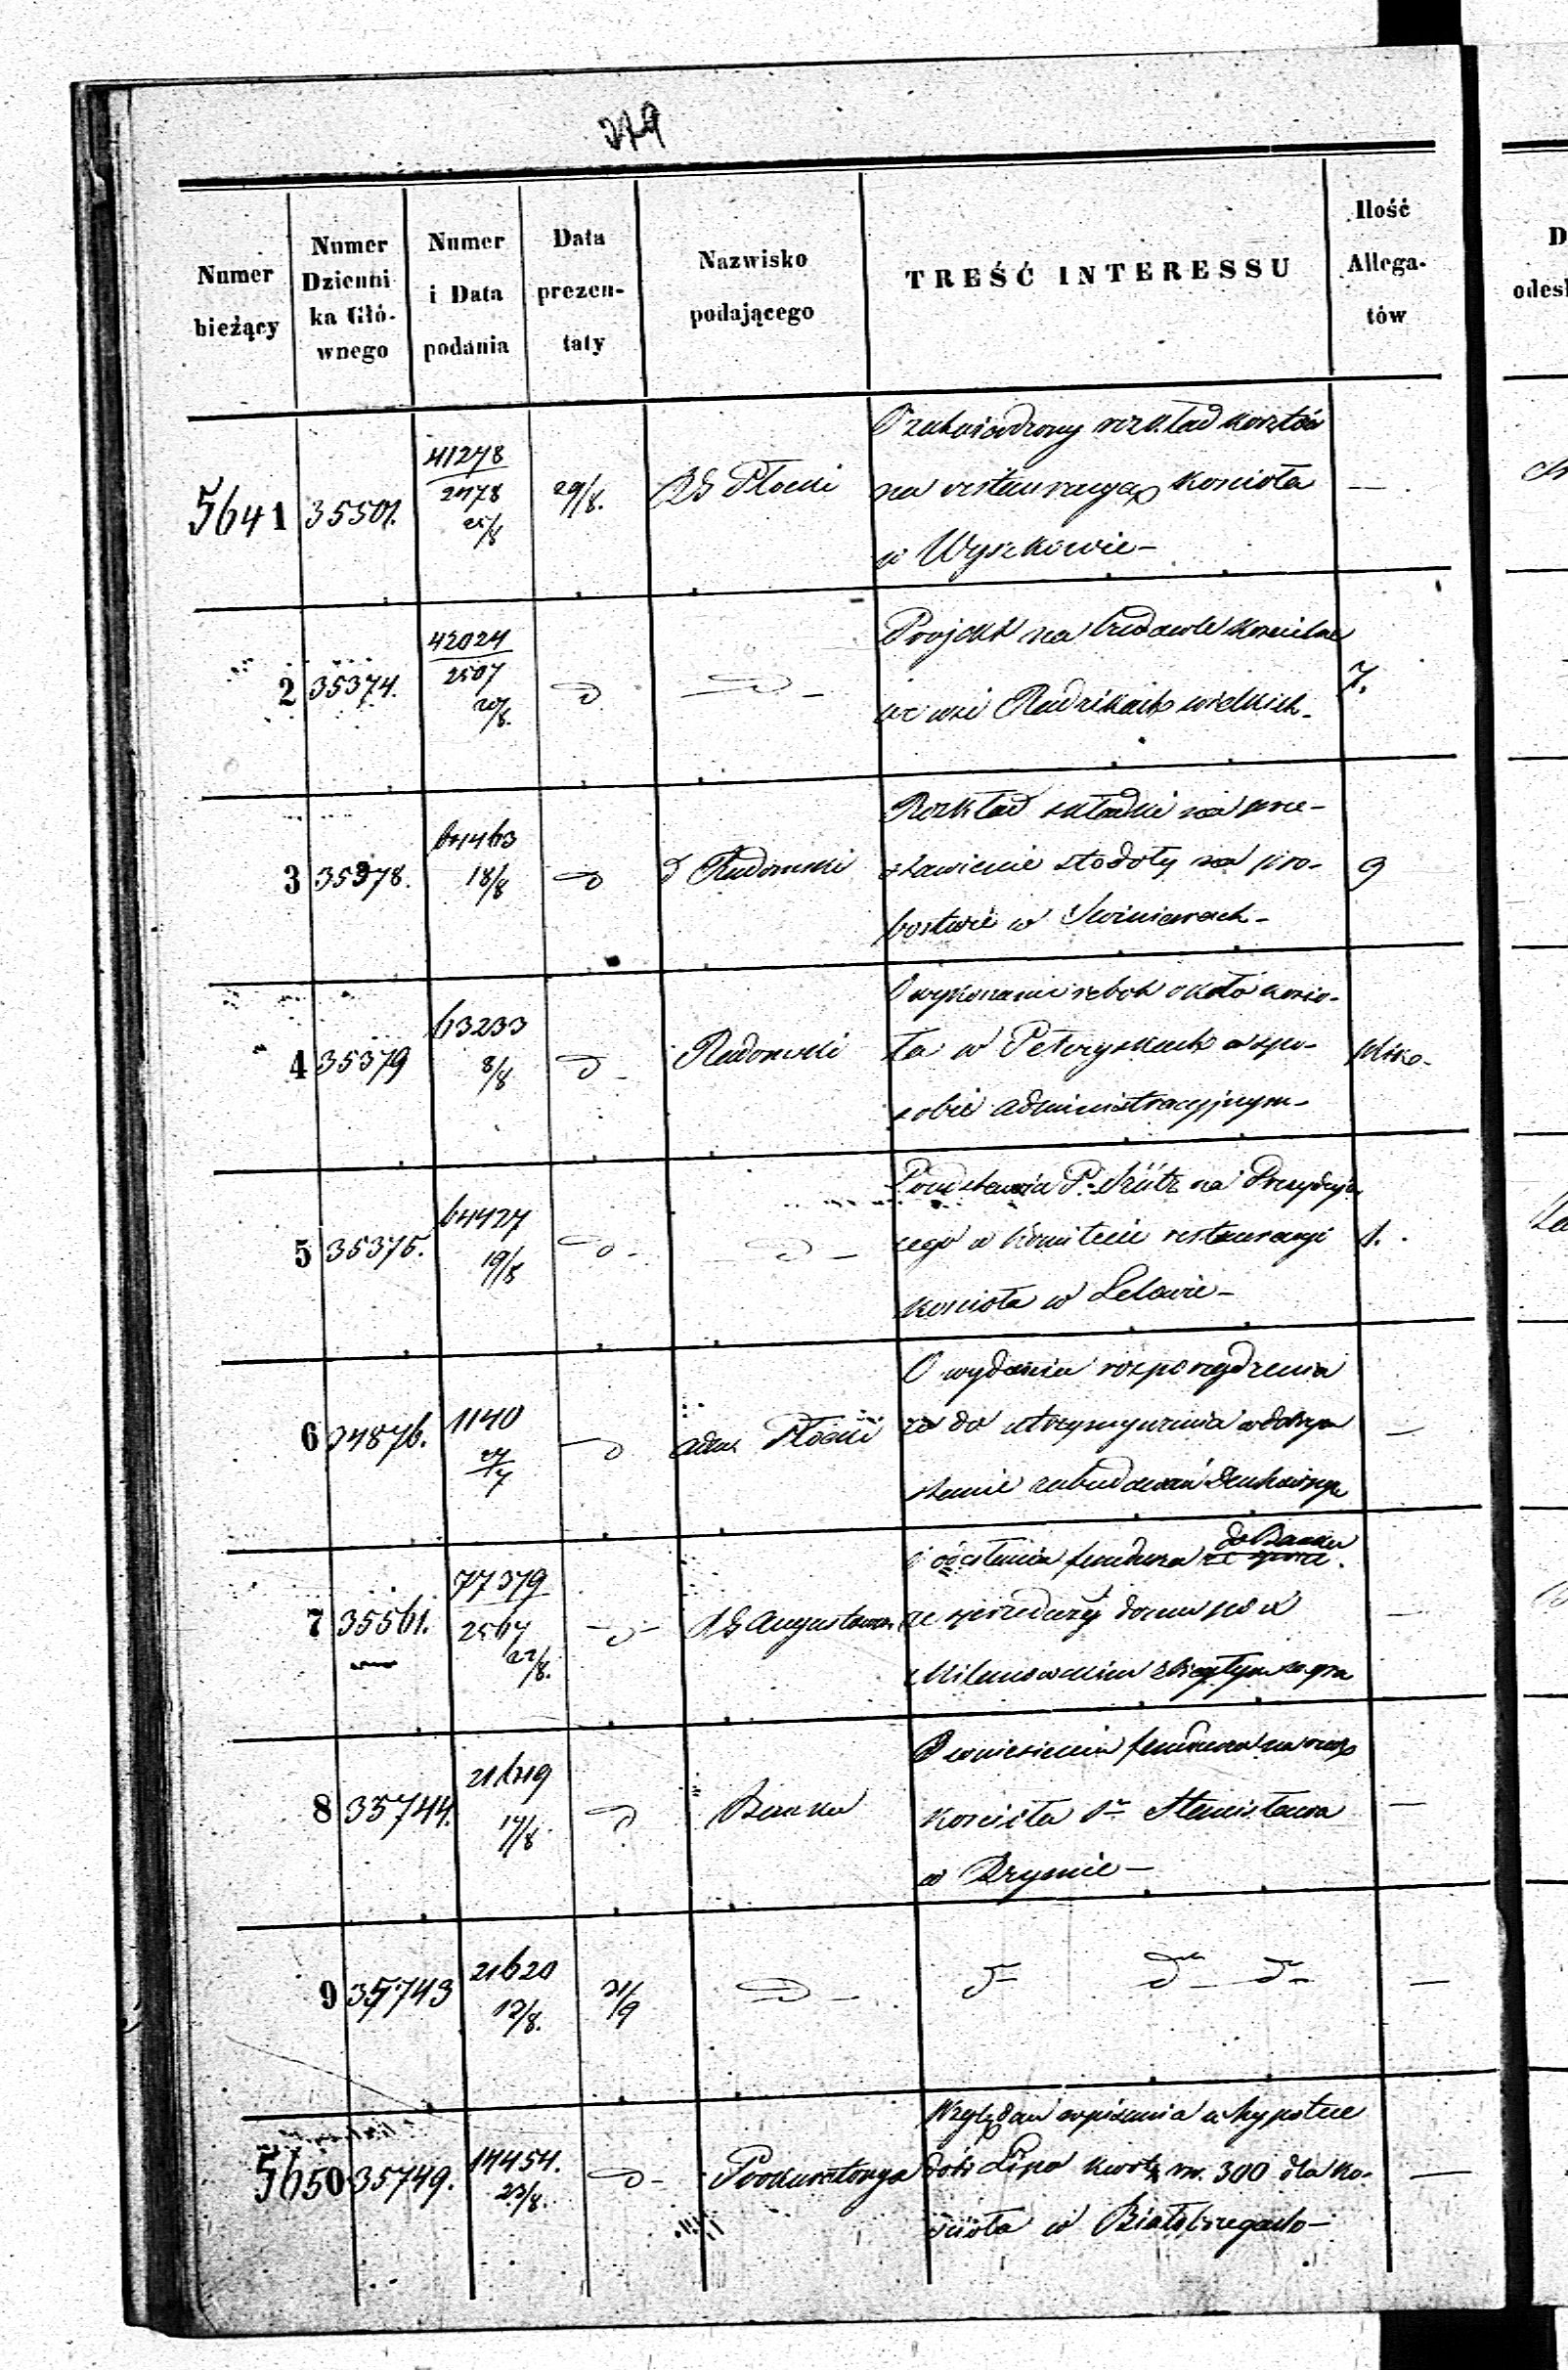 379
Numer bieżący
Numer Dzienni ka Głó- wnego
Numer i Data podania
Data prezen- taty
Nazwisko podającego
TREŚĆ INTERESSU
Ilość Allega- tów
5641 35501. 41278 2478 25/8 29/8. RG Płocki
rozkład kosztów
na restauracyą kościoła —.
w Wyszkowie —
2 35374. 42024 2507 20/8. D D —
Projekt na budowle kościelne
we wsi Radzikach wielkich. 7.
3 35378. 64463 18/8 D D Radomski
Rozkład składki na prze-
stawienie stodoły na pro- 9
bostwie w Świniarach —
4 35379 63233 8/8 D — Radomski
O wykonanie robót około kościo-
ła w Petrykozach w spo-
sobie administracyjnym —
5 35375. 64427 19/8 D — D —
na Prezydują
cego w Komitecie restauracyi 1.
kościoła w Lelowie —
6 34876. 1140 27/7 D Adm. Płocki
O wydanie rozporządzenia
co do utrzymywania w dobrym —
stanie zabudowań Duchownych
7 35561. 77379 2567 22/8. D — RG Augustowski
do Banku
funduszu ze sprze.
ze sprzedaży domu po x —
Milanowskim zbiegłym za gra
8 35744. 21619 17/8. D Banku
O wniesieniu funduszu na rzecz
kościoła Sgo Stanisława —
w Rzymie —
9 35743 21620 12/8. 21/9 D — dto dto dto —
5650 35749. 14454. 23/8. D — Prokuratorya
Względem wpisania w hypotece
dóbr Lipa kwoty rs. 300 dla ko- —
ścioła w Białobrzegach —